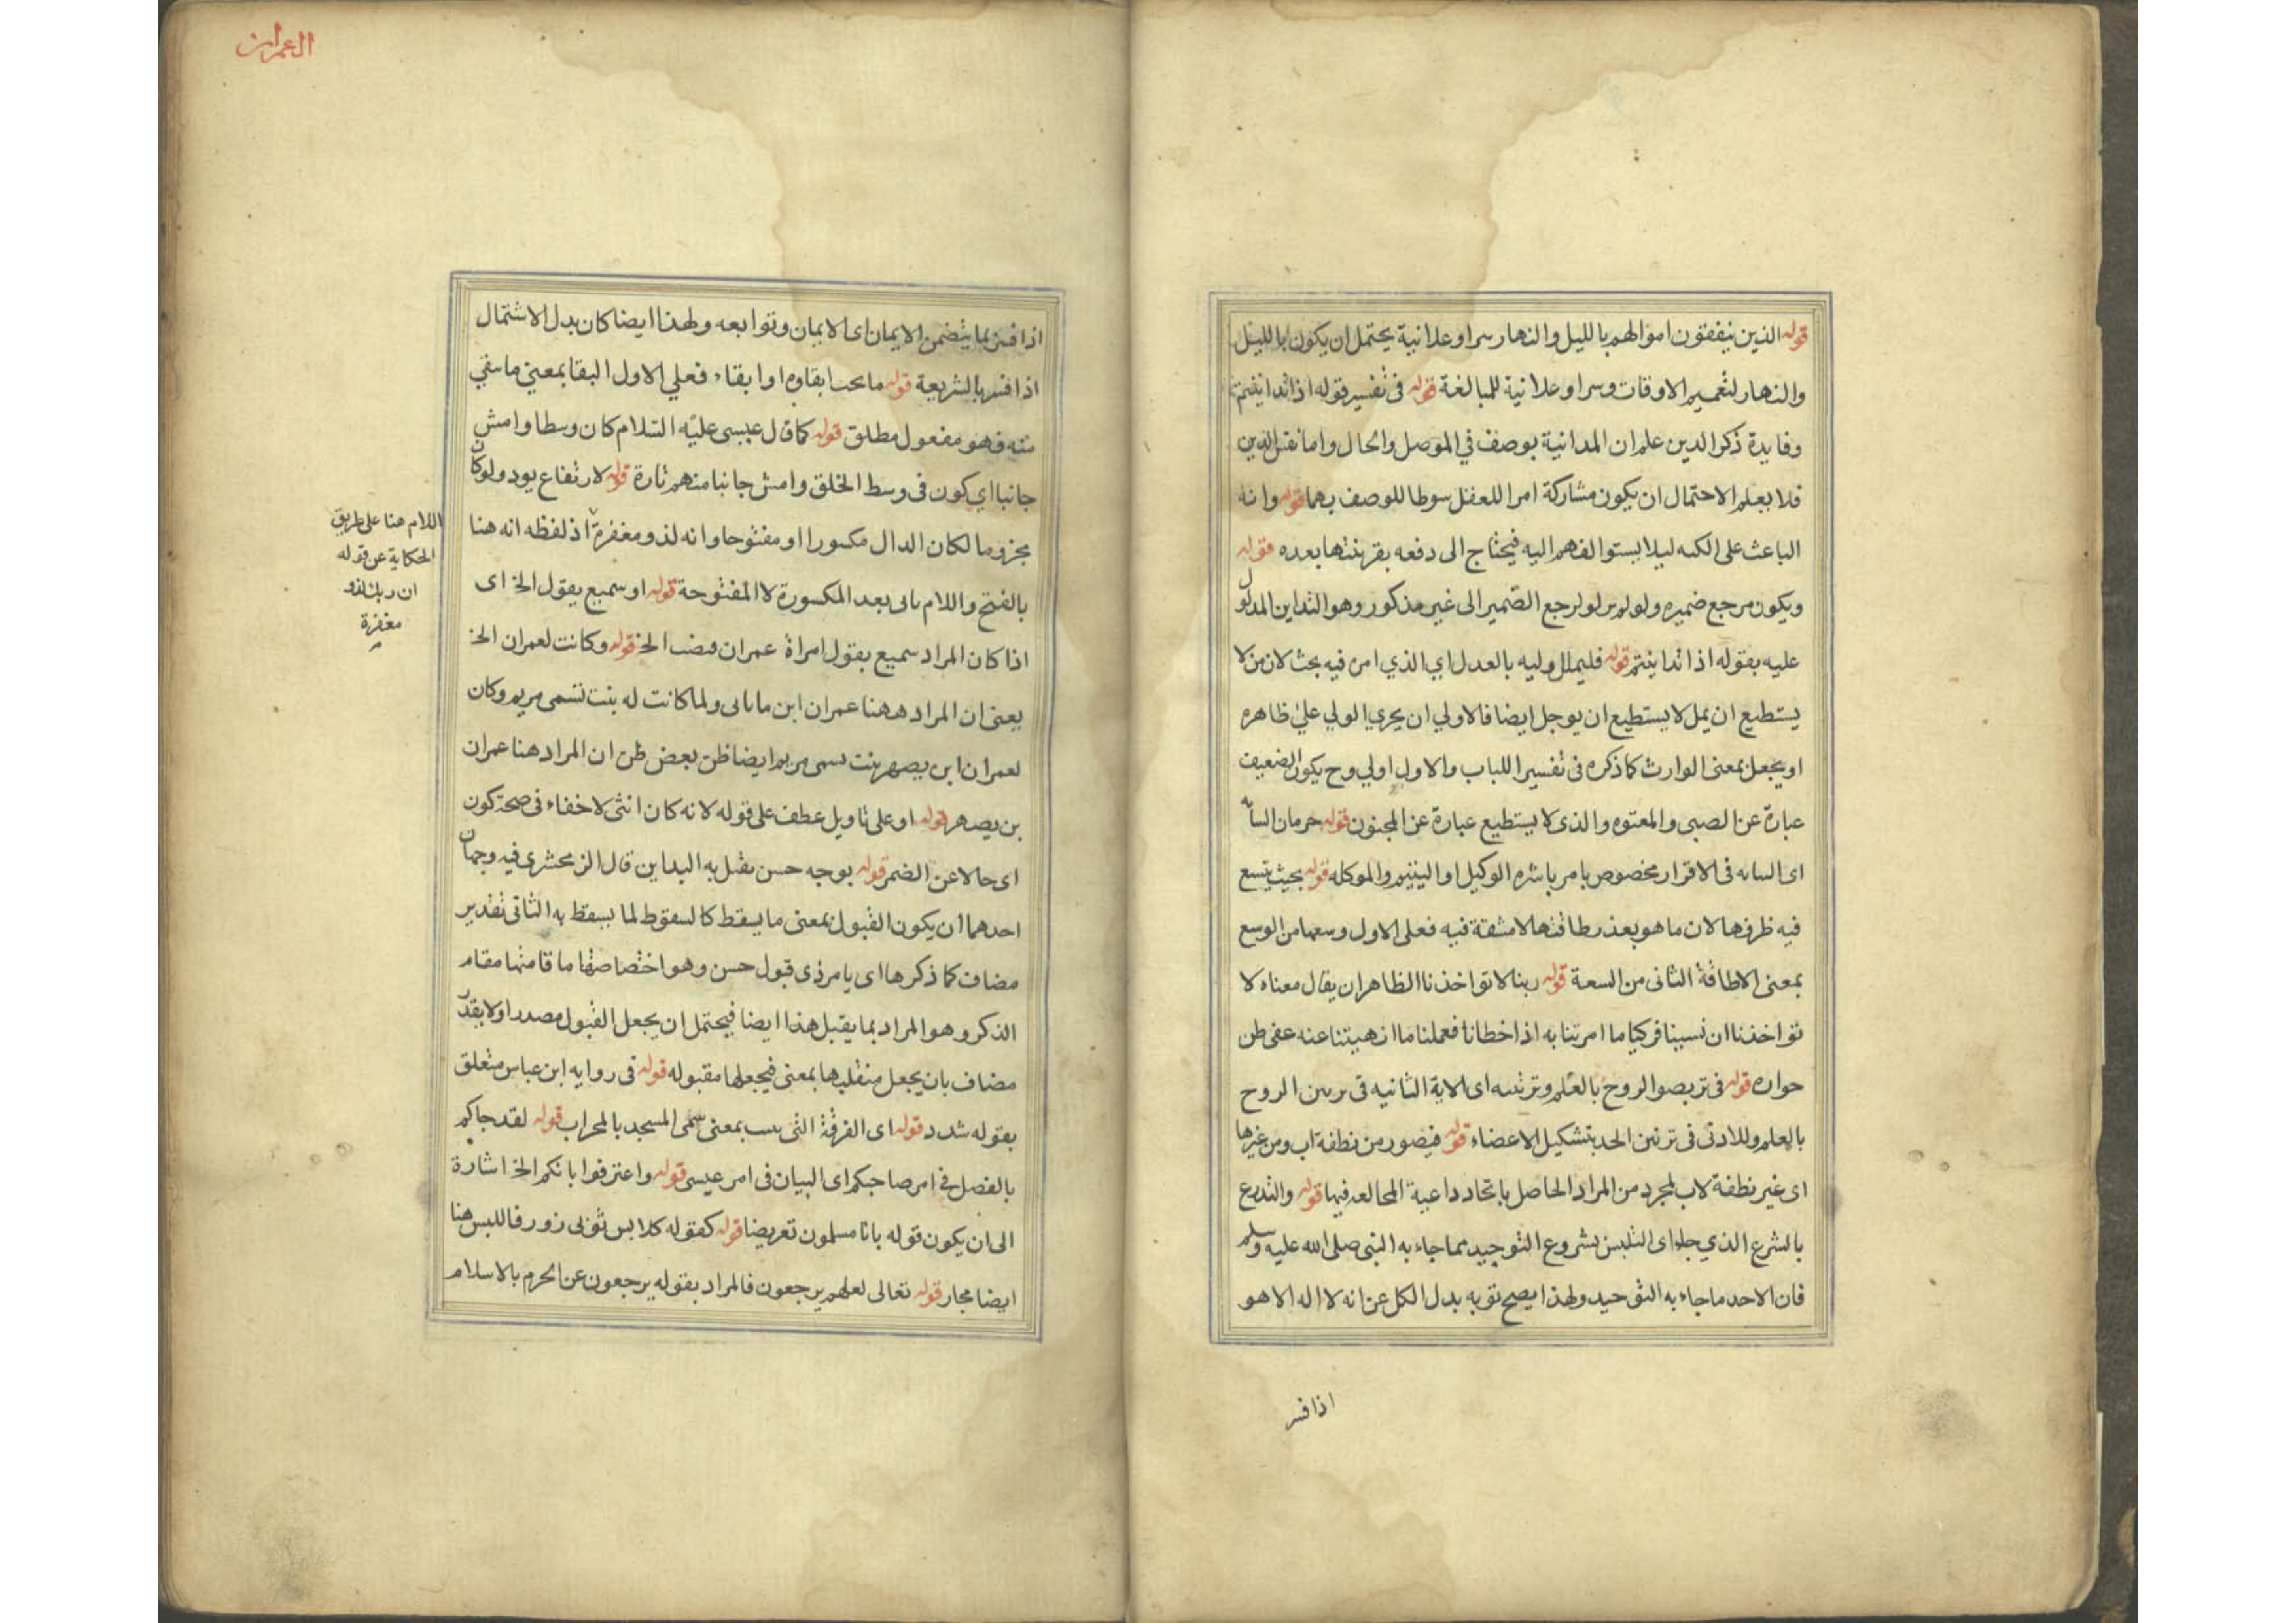 قوله الذين ينفقون اموالهم بالليل والنهار سرا وعلانية يحتمل ان يكون بالليل
والنهار لتعميم الاوقات وسرا وعلانية للمبالغة قوله في تفسير قوله اذا تداينتم
وفايدة ذكر الدين علم ان المداينة بوصف في الموصل والحال واما نفس الدين
فلا يعلم الاحتمال ان يكون مشاركة امرا للعقل سوطا للوصف بهما قوله وانه
الباعث على الكبه ليلا يستوا الفهم اليه فيحتاج الى دفعه بقرينتها بعده قوله
ويكون مرجع ضميره ولو لم لولرجع الضمير الى غير مذكور وهو التداين المدلول
عليه بقوله اذا تداينتم قوله فليملل وليه بالعدل اي الذي امن فيه بحث لان من لا
يستطيع ان يمل لا يستطيع ان يوجل ايضا فالاولي ان يجري الولي علي ظاهره
او يجعل بمعنى الوارث كما ذكره في تفسير اللباب والاول اولي وح يكون الضعيف
عبارة عن الصبي والمعتوه والذي لا يستطيع عبارة عن المجنون قوله حرمان
اى في الاقرار مخصوص بامر باشره الوكيل او اليتيم والموكله قوله بحيث يتسع
فيه ظرفها لان ما هو بعذر طاقتها لا مشقة فيه فعلى الاول وسعها من الوسع
بمعنى الاطاقة الثانى من السعة قوله ربنا لا تواخذنا الظاهر ان يقال معناه لا
تواخذنا ان نسينا فركيا ما امرتنا به اذا خطانا فعملنا ما انهيتنا عنه عفى طن
حواره قوله فى تربصوا الروح بالعلم وترتبه اى الاية الثانيه فى الروح
بالعلم وللادنى فى تزيين الحد بتشكيل الاعضاء قوله فيصور من نطفة اب ومن غيرها
اى غير نطفة لاب لمجرد من المراد الحاصل باتحاد داعية فيها قوله والتدرع
بالشرع الذي جاء اى التلبس بشروع التوحيد مما جاء به النبى صلى الله عليه وسلم
فان الاحد ما جاء به التوحيد ولهذا يصح توبه بدل الكل عن انه لا اله الا هو
اذا فسر
العمران
اذا فسر بما يتضمن الايمان اى الايمان وتوابعه ولهذا ايضا كان بدل الاشتمال
اذا فسر بالشريعة قوله ما يحب ابقاوه او ابقاء فعلي الاول البقا بمعني ما يبقي
منه فهو مفعول مطلق قوله كما قال عيسى عليه السلام كان وسطا وامش
جانبا اي كون فى وسط الخلق وامش جانبا منهم تارة قوله لارتفاع يود ولو كان
مجزوما لكان الدال مكسورا او مفتوحا وانه لذو مغفرة اذ لفظه انه هنا
بالفتح واللام ياتى بعد المكسورة لا المفتوحة قوله او سميع يقول الخ اى
اذا كان المراد سميع بقول امراة عمران الخ قوله وكانت لعمران الخ
يعنى ان المراد ههنا عمران ابن ماتان ولما كانت له بنت تسمى مريم وكان
لعمران ابن يصهر بنت تسمى مريم ايضا ظن بعض ظن ان المراد هنا عمران
بن يصهر قوله او على تاويل عطف على قوله لانه كان انثى لا خفاء فى صحة كون
اى حالا عن الضمر قوله بوجه حسن يقبل به البداين قال الزمخشرى فيه وجهان
احدهما ان يكون القبول بمعنى ما يسقط كالسقوط لما يسقط به الثانى تقدير
مضاف كما ذكرها اى يا مرذى قبول حسن وهو اختصاصها ما قامتها مقام
الذكر وهو المراد بما يقبل هذا ايضا فيحتمل ان يجعل القبول مصدرا ولا يقدر
مضاف بان يجعل بمعنى فيجعلها مقبوله قوله فى روايه ابن عباس متعلق
بقوله شدد قوله اى الغرفة التى بمعنى سمى المسجد بالمحراب قوله لقد جاكم
بالفصل فى امر صاحبكم اى البيان فى امر عيسى قوله واعترفوا بانكم الخ اشارة
الى ان يكون قوله بانا مسلمون تعريضا قوله كقوله كلابس ثوبى زور فاللبس هنا
ايضا مجاز قوله تعالى لعلهم يرجعون فالمراد بقوله يرجعون عن الحرم بالاسلام
اللام هنا على طريق
الحكاية عن قوله
ان ربك لذو
مغفرة